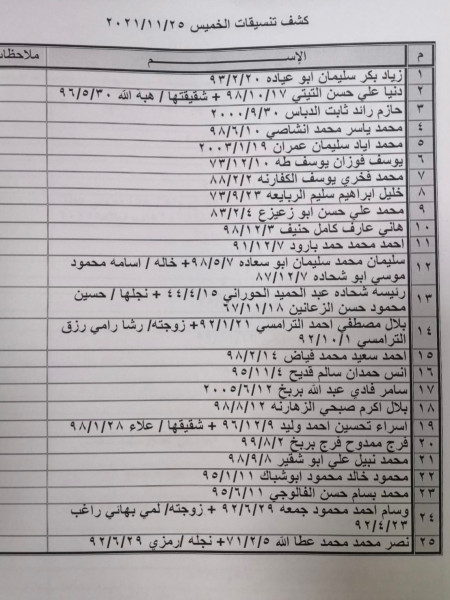 كشف تنسيقات الخميس ٢٠٢١/١١/٢٥
م الإســـــــــم ملاحظات
١ زياد بكر سليمان ابو عياده ٩٣/٢/٢٠
٢ دنيا علي حسن التيتي ٩٨/١٠/١٧ + شقيقتها / هبه الله ٩٦/٥/٣٠
٣ حازم رائد ثابت الدباس ٢٠٠٠/٩/٣٠
٤ محمد ياسر محمد انشاصي ٩٨/٦/١٠
٥ محمد اياد سليمان عمران ٢٠٠٣/١/١٩
٦ يوسف فوزان يوسف طه ٧٣/١٢/١٠
٧ محمد فخري يوسف الكفارنه ٨٨/٢/٢
٨ خليل ابراهيم سليم الربايعه ٧٣/٩/٢٣
٩ محمد علي حسن ابو زعيزع ٨٣/٢/٤
١٠ هاني عارف كامل حنيف ٩٨/١٢/٣
١١ احمد محمد حمد بارود ٩١/١٢/٧
١٢ سليمان محمد سليمان ابو سعاده ٩٨/٥/٧+ خاله / اسامه محمود
موسي ابو شحاده ٨٧/١٢/٧
١٣ رئيسه شحاده عبد الحميد الحوراني ٤٤/٤/١٥ + نجلها / حسين
محمود حسن الزعانين ٦٧/١١/١٨
١٤ بلال مصطفي احمد الترامسي ٩٢/١/٢١+ زوجته/ رشا رامي رزق
الترامسي ٩٢/١٠/١
١٥ احمد سعيد محمد فياض ٩٨/٢/١٤
١٦ انس حمدان سالم قديح ٩٥/١١/٤
١٧ سامر فادي عبد الله بربخ ٢٠٠٥/٦/١٢
١٨ بلال اكرم صبحي الزهارنه ٩٨/٨/١٢
١٩ اسراء تحسين احمد وليد ٩٦/١٢/٩ + شقيقها / علاء ٩٨/١/٢٨
٢٠ فرج ممدوح فرج بربخ ٩٩/٨/٢
٢١ محمد نبيل علي ابو شقير ٩٨/٩/٨
٢٢ محمود خالد محمود ابوشباك ٩٥/١/١١
٢٣ محمد بسام حسن الفالوجي ٩٥/٦/١١
٢٤ وسام احمد محمود جمعه ٩٢/٦/٢٩ + زوجته/ لمي بهائي راغب
٩٢/٤/٢٣
٢٥ نصر محمد محمد عطا الله ٧١/٢/٥+ نجله /رمزي ٩٢/٦/٢٩